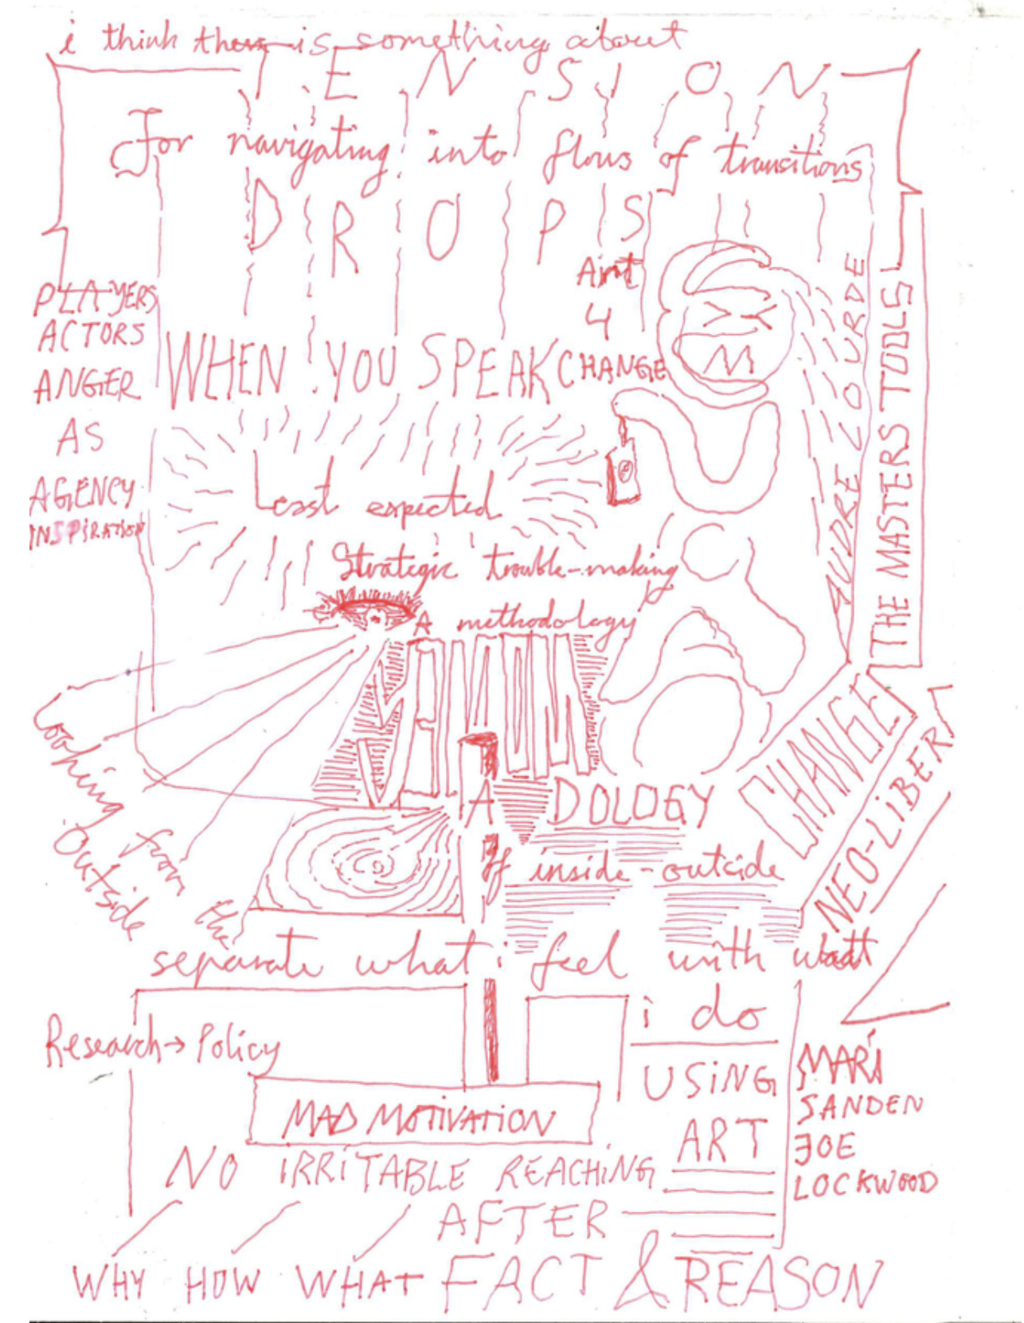 i think there is something about
TENSION
For navigating into flows of transitions
DROPS
Art
4
CHANGE
PLAYERS
ACTORS
ANGER
AS
AGENCY
INSPIRATION
WHEN YOU SPEAK
Least expected
Strategic trouble-making
A methodology
AUDRE LOURDE
THE MASTERS TOOLS
CHANGE
NEO-LIBER
Looking from the
Outside
MAD
A DOLOGY
If inside-outside
separate what i feel with what
i do
Research → Policy
USiNG
ART
MAD MOTiVATiON
MARi
SANDEN
JOE
LOCKWOOD
NO iRRiTABLE REACHiNG
AFTER
WHY HOW WHAT FACT & REASON